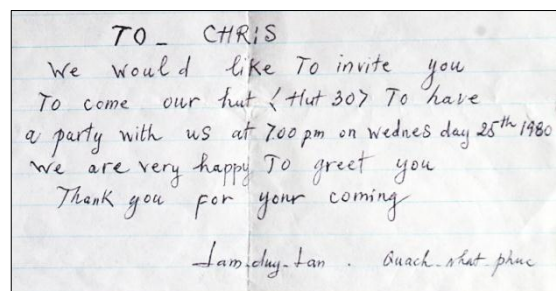 TO_ CHRIS
We would like To invite you
To come our hut <Hut 30> To have
a party with us at 7.00 pm on Wednes day 25th 1980
We are very happy To greet you
Thank you for your coming
Lam_duy_Lan . Quach_nhat_phuc